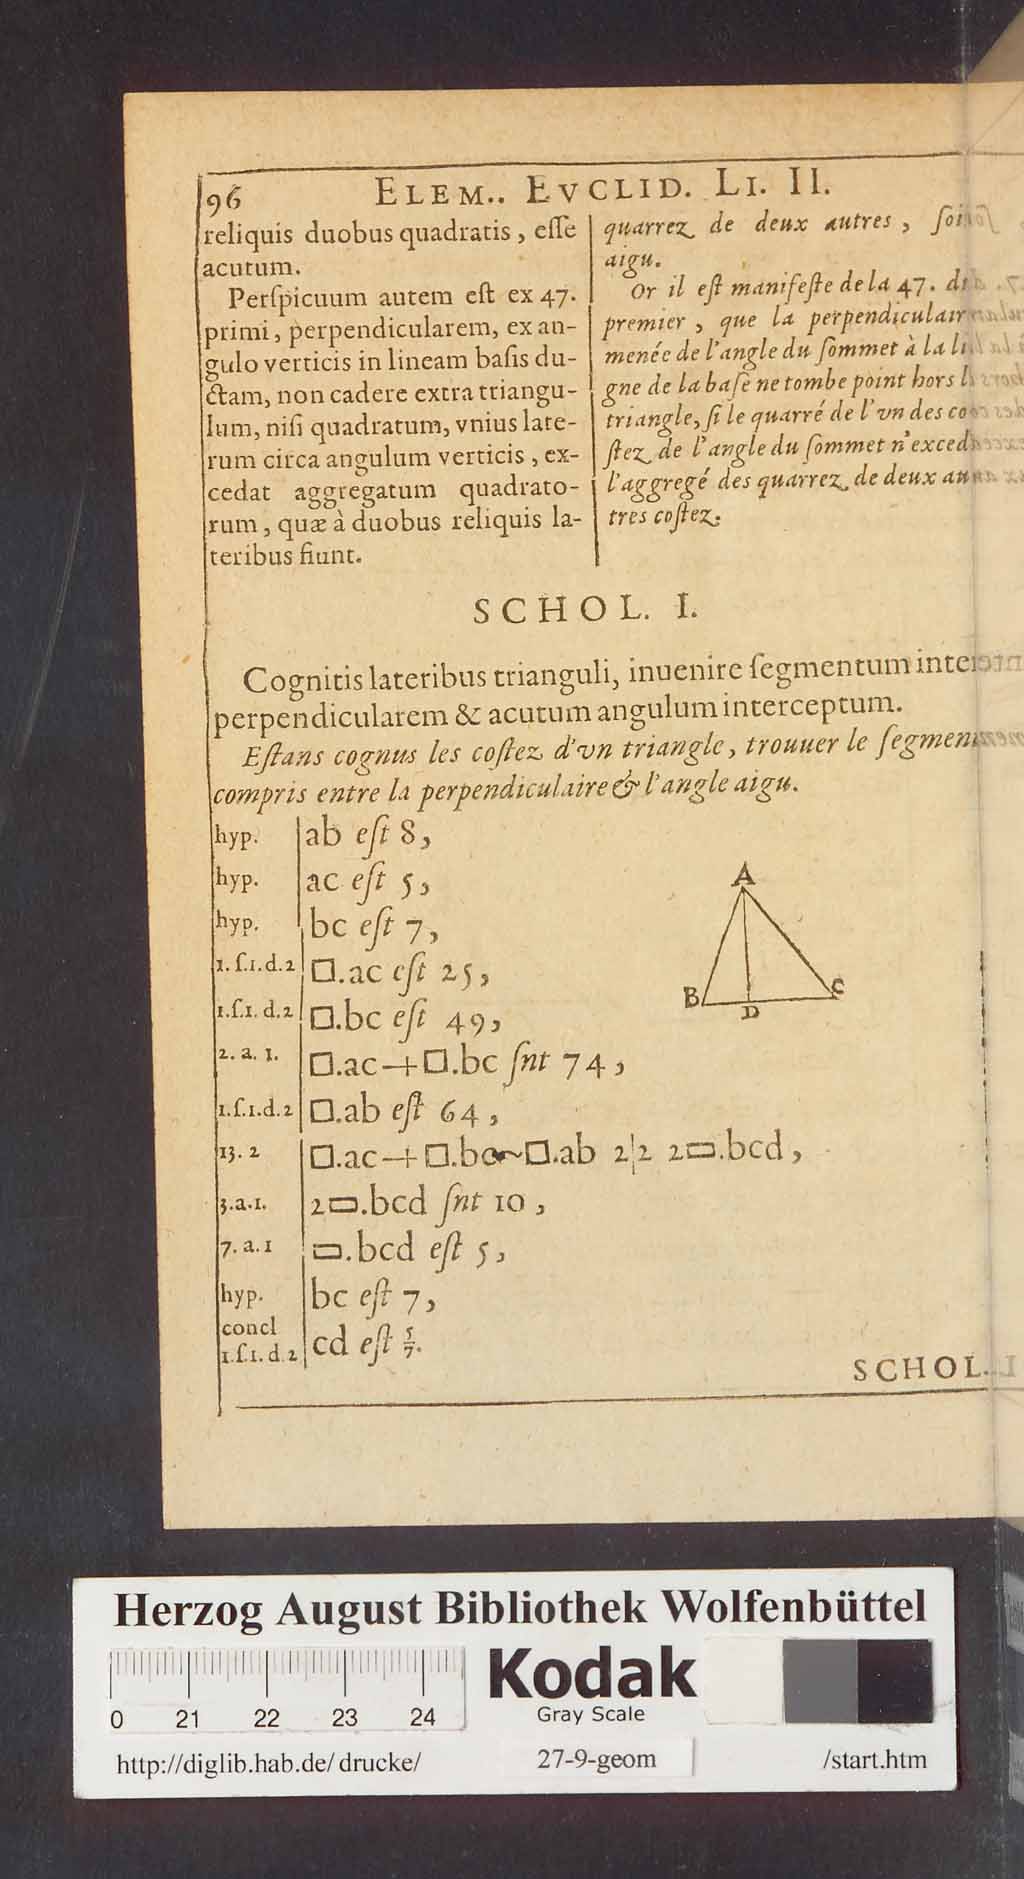 96 ELEM.. EVCLID. LI. II.
reliquis duobus quadratis, eſſe
acutum.
Perſpicuum autem eſt ex 47.
primi, perpendicularem, ex an-
gulo verticis in lineam baſis du-
ctam, non cadere extra triangu-
lum, niſi quadratum, vnius late-
rum circa angulum verticis, ex-
cedat aggregatum quadrato-
rum, quæ à duobus reliquis la-
teribus fiunt.
quarrez de deux autres, ſoit
aigu.
Or il eſt manifeſte de la 47. du
premier, que la perpendiculaire
menée de l'angle du ſommet à la li-
gne de la baſe ne tombe point hors le
triangle, ſi le quarré de l'vn des co-
ſtez de l'angle du ſommet n'excede
l'aggregé des quarrez de deux au-
tres coſtez.
SCHOL. I.
Cognitis lateribus trianguli, inuenire ſegmentum inter
perpendicularem & acutum angulum interceptum.
Eſtans cognus les coſtez d'vn triangle, trouuer le ſegment
compris entre la perpendiculaire & l'angle aigu.
hyp. ab eſt 8,
hyp. ac eſt 5,
hyp. bc eſt 7,
1.ſ.1.d.2 □.ac eſt 25,
1.ſ.1.d.2 □.bc eſt 49,
2.a.1. □.ac+□.bc ſnt 74,
1.ſ.1.d.2 □.ab eſt 64,
13.2 □.ac+□.bc~□.ab 2|2 2▭.bcd,
3.a.1. 2▭.bcd ſnt 10,
7.a.1 ▭.bcd eſt 5,
hyp. bc eſt 7,
concl
1.ſ.1.d.2 cd eſt 5/7.
A
B
D
C
SCHOL.
Herzog August Bibliothek Wolfenbüttel
0 21 22 23 24
Kodak
Gray Scale
http://diglib.hab.de/drucke/ 27-9-geom /start.htm